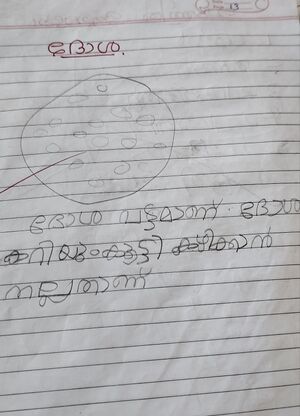 13
ദോശ
ദോശ വട്ടമാണ്. ദോശ
കറിയുംകൂട്ടി കഴിക്കാൻ
നല്ലതാണ്